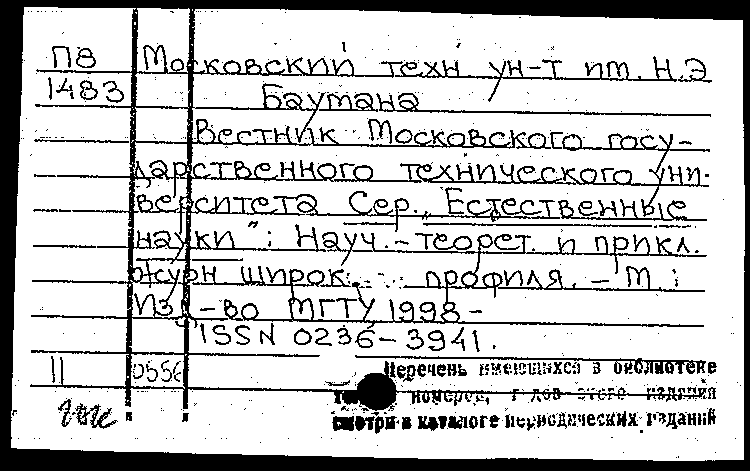 П8 Московский техн ун-т им. Н.Э
1483 Баумана
Вестник Московского госу-
дарственного технического уни-
верситета Сер. „Естественные
науки": Науч.-теорет. и прикл.
журн широк. профиля. – М :
Изд-во МГТУ 1998-
ISSN 0236-3941.
11 0556 Перечень имеющихся в библиотеке
номеров, годов этого издания
смотри в каталоге периодических изданий